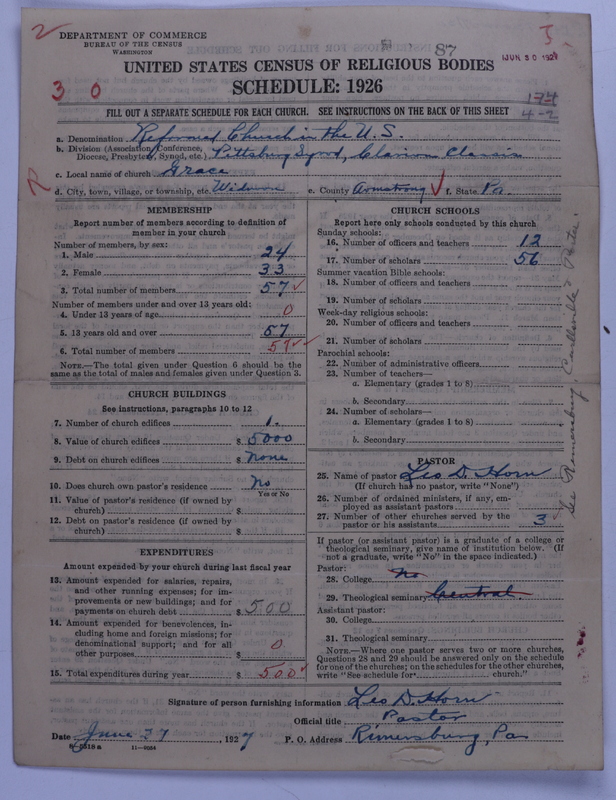 2
DEPARTMENT OF COMMERCE
BUREAU OF THE CENSUS
WASHINGTON
87
JUN 30 1927
UNITED STATES CENSUS OF RELIGIOUS BODIES
SCHEDULE: 1926
3 0
FILL OUT A SEPARATE SCHEDULE FOR EACH CHURCH. SEE INSTRUCTIONS ON THE BACK OF THIS SHEET
4-2
a. Denomination Reformed Church in the U.S.
b. Division (Association, Conference, Diocese, Presbytery, Synod, etc.) Pittsburg Synod, Clarion Classis
c. Local name of church Grace
d. City, town, village, or township, etc. Widnoon e. County Armstrong f. State Pa.
MEMBERSHIP
Report number of members according to definition of
member in your church
Number of members, by sex:
1. Male 24
2. Female 33
3. Total number of members 57
Number of members under and over 13 years old:
4. Under 13 years of age 0
5. 13 years old and over 57
6. Total number of members 57
NOTE.—The total given under Question 6 should be
same as the total of males and females given under Question 3.
CHURCH BUILDINGS
See instructions, paragraphs 10 to 12
7. Number of church edifices 1.
8. Value of church edifices $ 5000
9. Debt on church edifices $ None
10. Does church own pastor's residence No
Yes or No
11. Value of pastor's residence (if owned by
church) $
12. Debt on pastor's residence (if owned by
church) $
EXPENDITURES
Amount expended by your church during last fiscal year
13. Amount expended for salaries, repairs,
and other running expenses; for im-
provements or new buildings; and for
payments on church debt $ 500
14. Amount expended for benevolences, in-
cluding home and foreign missions; for
denominational support; and for all
other purposes $ 0
15. Total expenditures during year $ 500
CHURCH SCHOOLS
Report here only schools conducted by this church
Sunday schools:
16. Number of officers and teachers 12
17. Number of scholars 56
Summer vacation Bible schools:
18. Number of officers and teachers
19. Number of scholars
Week-day religious schools:
20. Number of officers and teachers
21. Number of scholars
Parochial schools:
22. Number of administrative officers
23. Number of teachers—
a. Elementary (grades 1 to 8)
b. Secondary
24. Number of scholars—
a. Elementary (grades 1 to 8)
b. Secondary
PASTOR
25. Name of pastor Leo D. Horn
(If church has no pastor, write "None")
26. Number of ordained ministers, if any, em-
ployed as assistant pastors
27. Number of other churches served by the
pastor or his assistants 3
If pastor (or assistant pastor) is a graduate of a college or
theological seminary, give name of institution below. (If
not a graduate, write "No" in the space indicated.)
Pastor:
28. College No
29. Theological seminary Central.
Assistant pastor:
30. College
31. Theological seminary
NOTE.—Where one pastor serves two or more churches,
Questions 28 and 29 should be answered only on the schedule
for one of the churches; on the schedules for the other churches,
write "See schedule for church."
See Rimersburg
Signature of person furnishing information Leo D. Horn
Official title Pastor
Date June 27, 1927 P. O. Address Rimersburg, Pa
11—9064